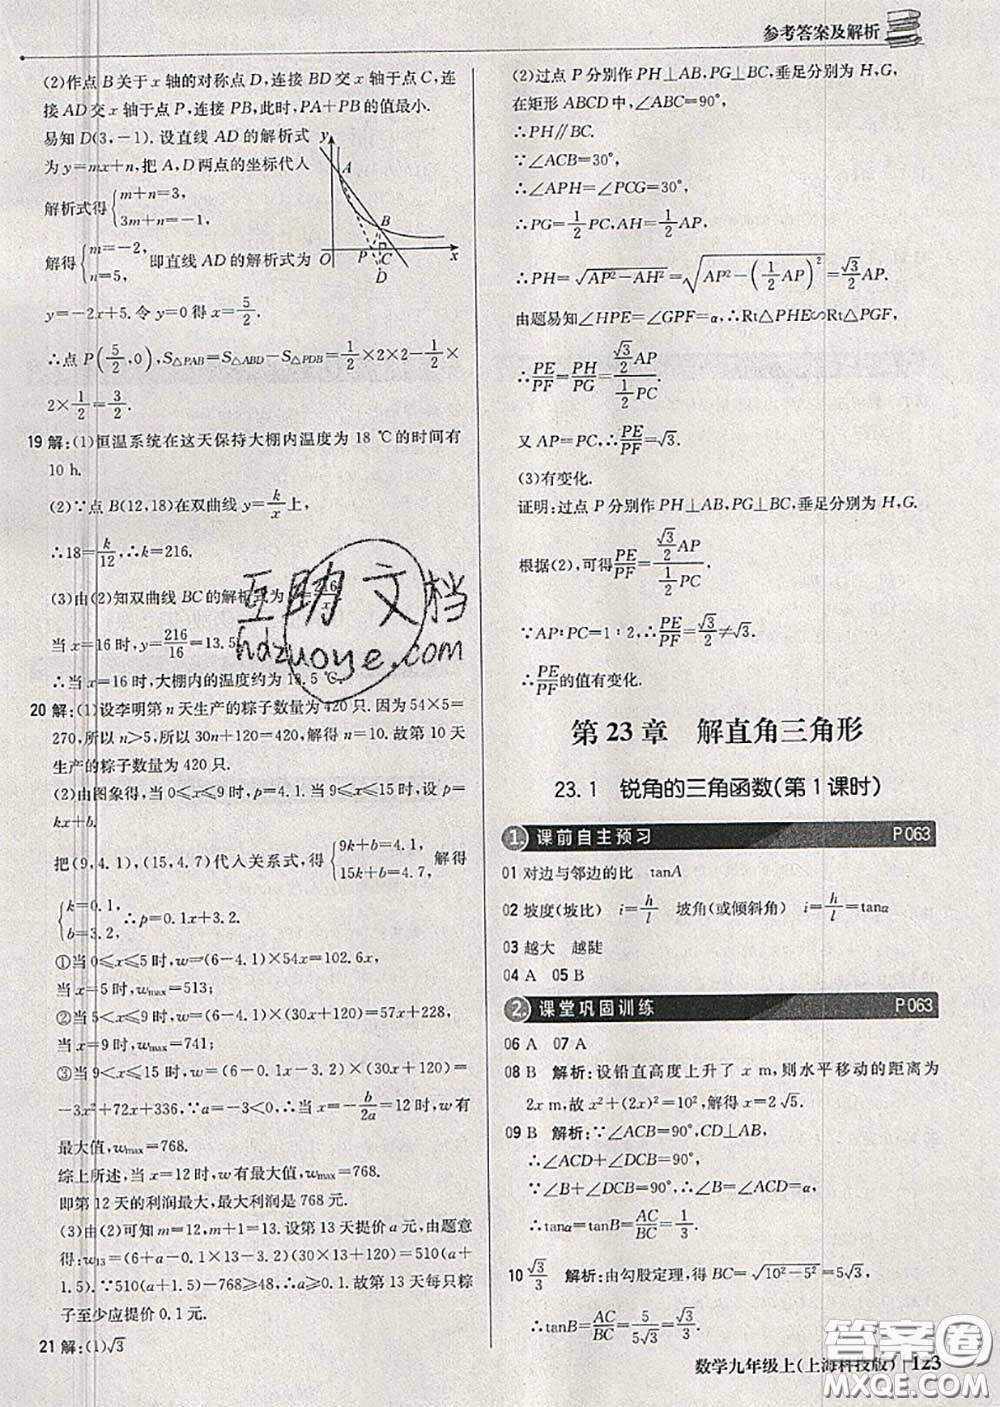 参考答案及解析
(2)作点B关于x轴的对称点D,连接BD交x轴于点C,连
接AD交x轴于点P,连接PB,此时,PA+PB的值最小.
易知D(3,-1).设直线AD的解析式
为y=mx+n,把A,D两点的坐标代入
解析式得{m+n=3, 3m+n=-1,
解得{m=-2, n=5, 即直线AD的解析式为
y=-2x+5.令y=0得x=5/2.
y A B O P C x D
∴点P(5/2,0),S△PAB=S△ABD-S△PDB=1/2×2×2-1/2×
2×1/2=3/2.
19 解:(1)恒温系统在这天保持大棚内温度为18 ℃的时间有
10 h.
(2)∵点B(12,18)在双曲线y=k/x上,
∴18=k/12,∴k=216.
(3)由(2)知双曲线BC的解析式为y=216/x
当x=16时,y=216/16=13.5
∴当x=16时,大棚内的温度约为13.5℃.
20 解:(1)设李明第n天生产的粽子数量为420只.因为54×5=
270,所以n>5,所以30n+120=420.解得n=10.故第10天
生产的粽子数量为420只.
(2)由图象得,当0≤x≤9时,p=4.1;当9≤x≤15时,设p=
kx+b.
把(9,4.1),(15,4.7)代入关系式,得{9k+b=4.1, 15k+b=4.7, 解得
{k=0.1, b=3.2. ∴p=0.1x+3.2.
①当0≤x≤5时,w=(6-4.1)×54x=102.6x,
当x=5时,wmax=513;
②当5<x≤9时,w=(6-4.1)×(30x+120)=57x+228,
当x=9时,wmax=741;
③当9≤x≤15时,w=(6-0.1x-3.2)×(30x+120)=
-3x²+72x+336,∵a=-3<0,∴当x=-b/2a=12时,w有
最大值,wmax=768.
综上所述,当x=12时,w有最大值,wmax=768.
即第12天的利润最大,最大利润是768元.
(3)由(2)可知m=12,m+1=13.设第13天提价a元,由题意
得:w13=(6+a-0.1×13-3.2)(30×13+120)=510(a+
1.5).∵510(a+1.5)-768≥48,∴a≥0.1.故第13天每只粽
子至少应提价0.1元.
21 解:(1)√3
(2)过点P分别作PH⊥AB,PG⊥BC,垂足分别为H,G,
在矩形ABCD中,∠ABC=90°,
∴PH∥BC.
∵∠ACB=30°,
∴∠APH=∠PCG=30°,
∴PG=1/2PC,AH=1/2AP,
∴PH=√(AP²-AH²)=√(AP²-(1/2AP)²)=√3/2AP.
由题易知∠HPE=∠GPF=α,∴Rt△PHE∽Rt△PGF,
∴PE/PF=PH/PG=(√3/2AP)/(1/2PC).
又AP=PC,∴PE/PF=√3.
(3)有变化.
证明:过点P分别作PH⊥AB,PG⊥BC,垂足分别为H,G.
根据(2),可得PE/PF=(√3/2AP)/(1/2PC).
∵AP∶PC=1∶2,∴PE/PF=√3/2≠√3.
∴PE/PF的值有变化.
第23章 解直角三角形
23.1 锐角的三角函数(第1课时)
1. 课前自主预习 P063
01 对边与邻边的比 tanA
02 坡度(坡比) i=h/l 坡角(或倾斜角) i=h/l=tanα
03 越大 越陡
04 A 05 B
2. 课堂巩固训练 P063
06 A 07 A
08 B 解析:设铅直高度上升了x m,则水平移动的距离为
2x m,故x²+(2x)²=10²,解得x=2√5.
09 B 解析:∵∠ACB=90°,CD⊥AB,
∴∠ACD+∠DCB=90°,
∵∠B+∠DCB=90°,∴∠B=∠ACD=α,
∴tanα=tanB=AC/BC=1/3.
10 √3/3 解析:由勾股定理,得BC=√(10²-5²)=5√3,
∴tanB=AC/BC=5/5√3=√3/3.
数学九年级上(上海科技版) 123
互助文档
hdzuoye.com
答案圈
MXQE.COM